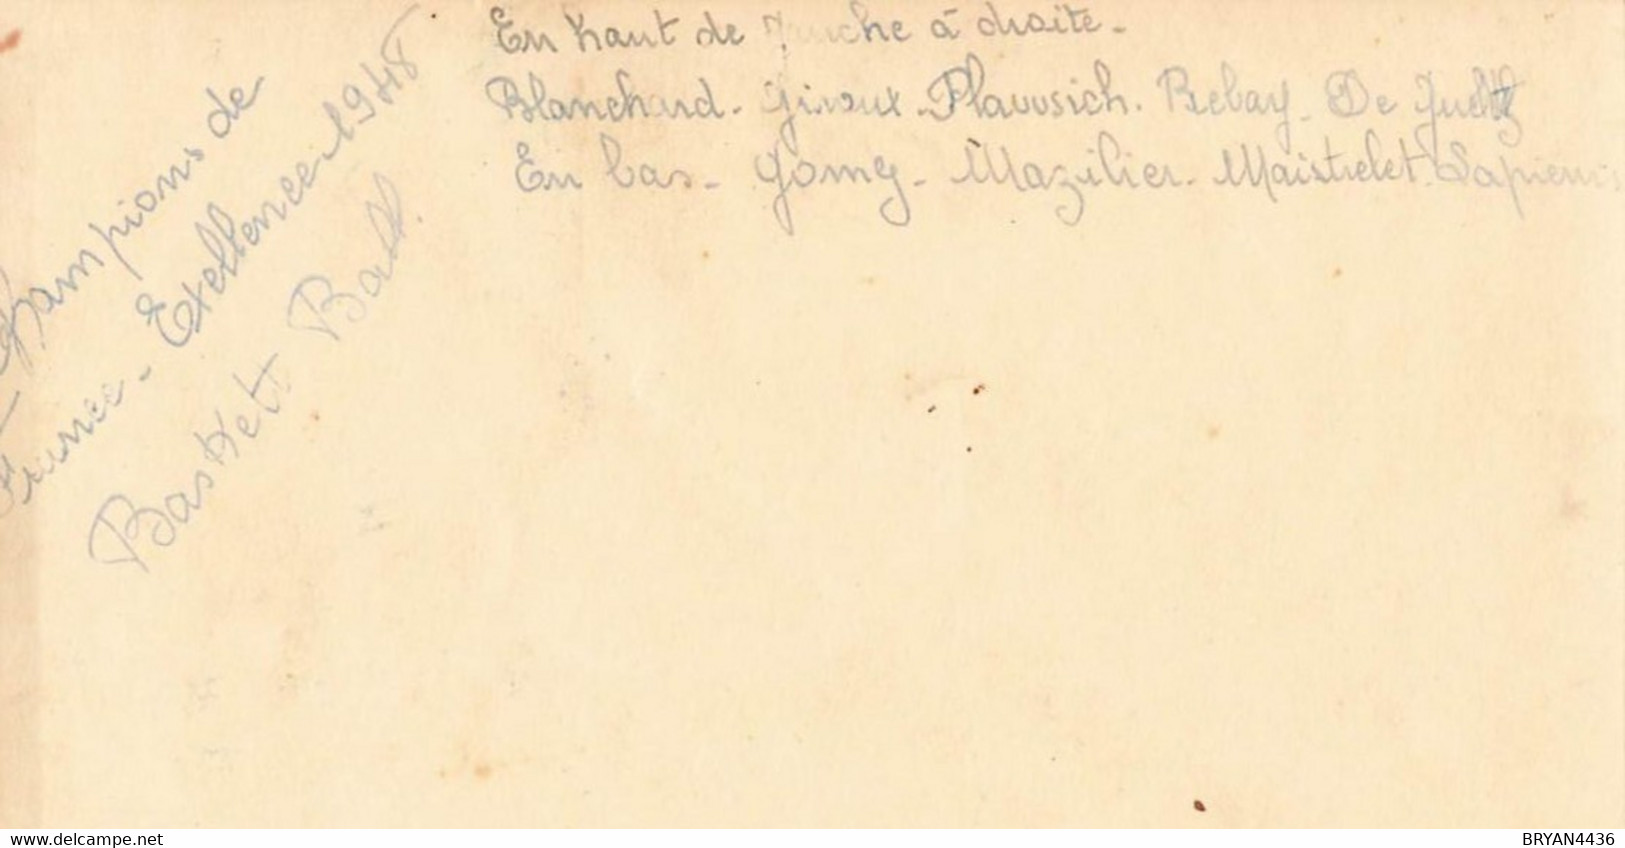 En haut de Gauche à droite -
Blanchard - Giroux - Plavosich. Rebay - De
En bas - Gomez - Mazilier - Maistrelet -
Champions de
France - Exellence 1948
Basket Ball.
www.delcampe.net
BRYAN4436